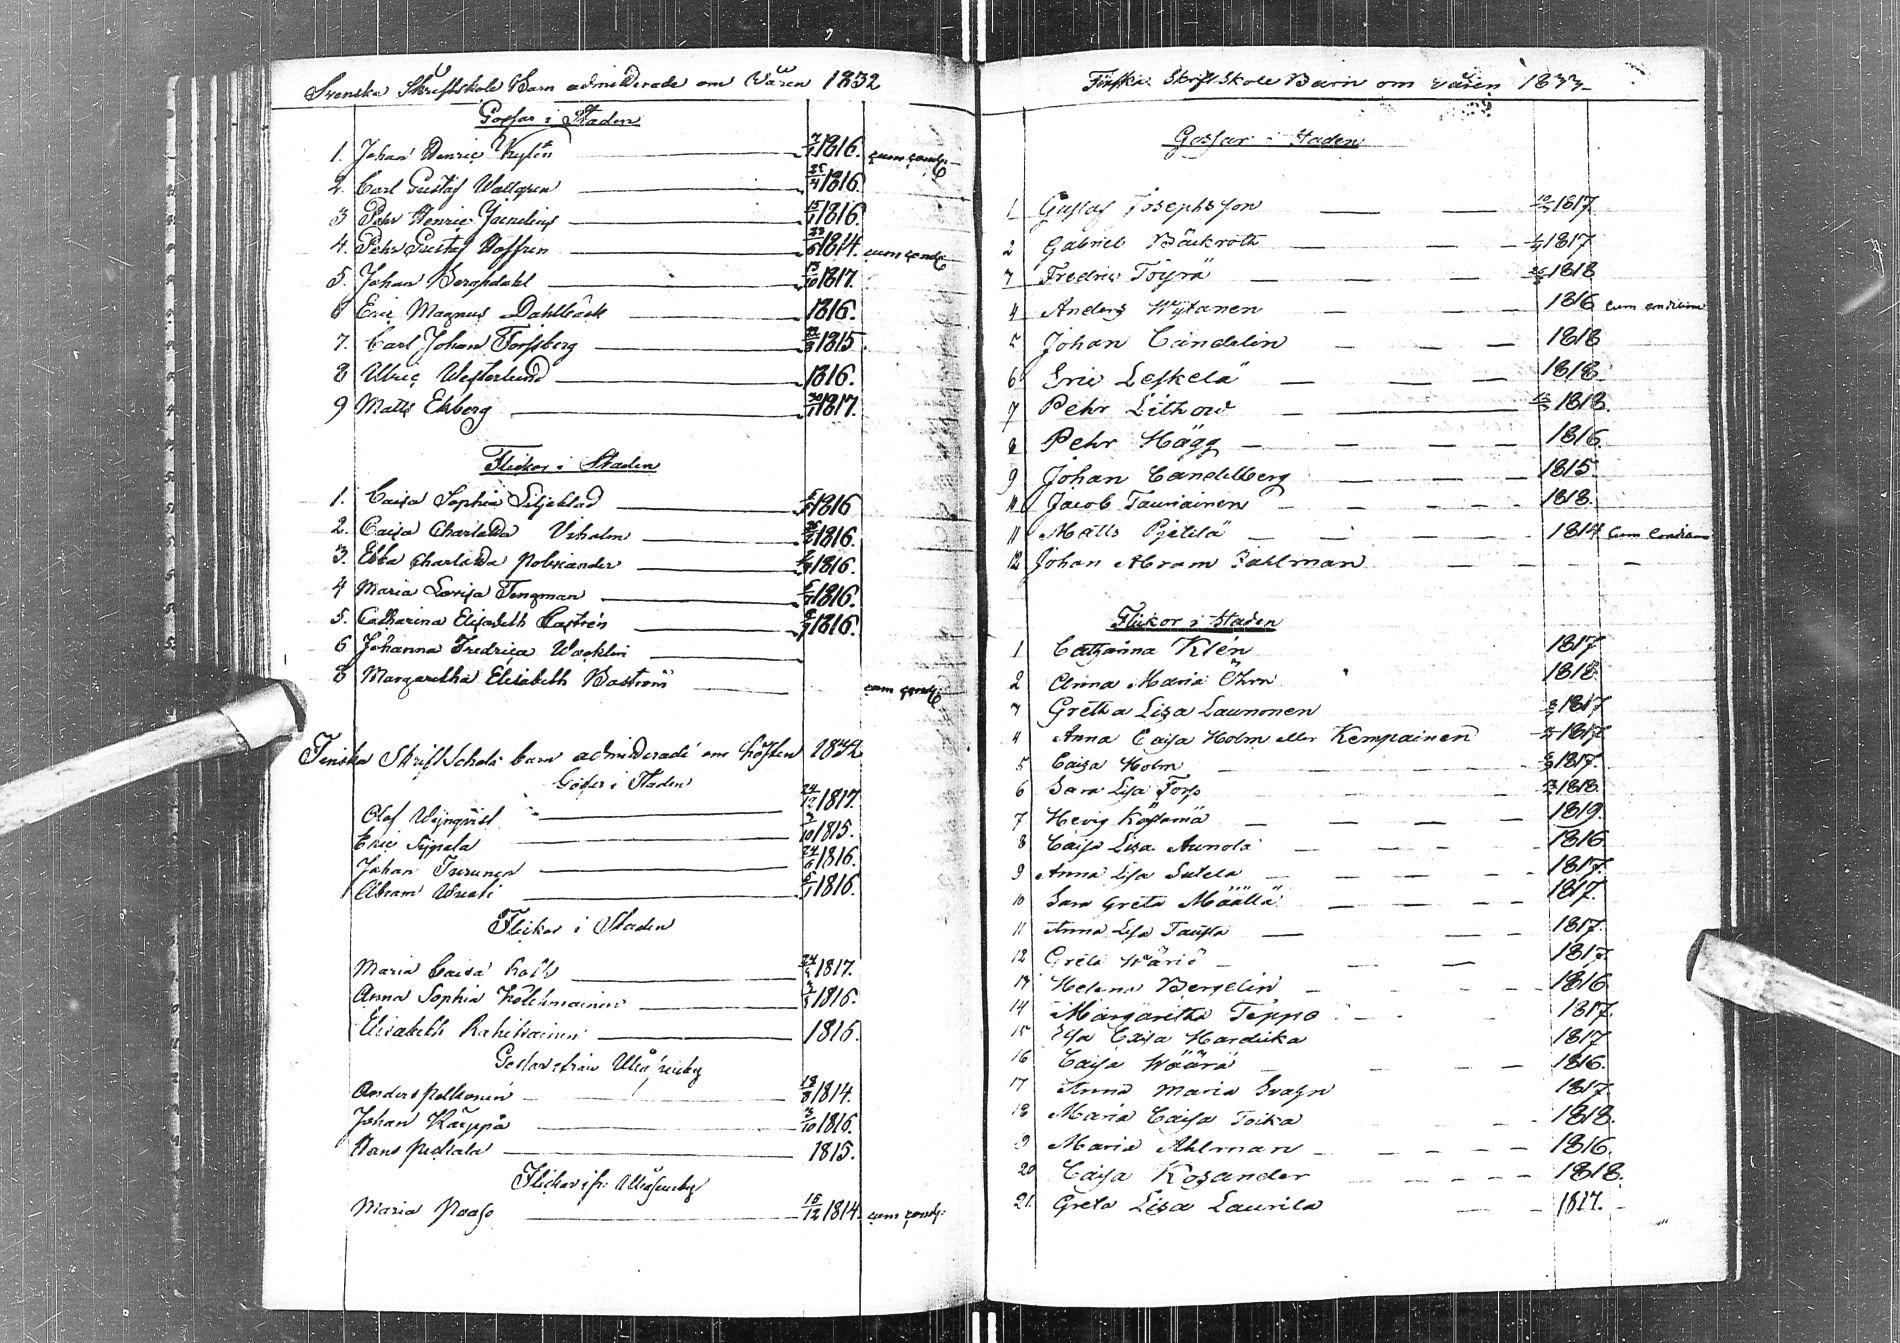 Svenska Skriftskole Barn admitterade om Våren 1832
Gossar i Staden
1. Johan Henric 1816. cum cond.
2. Carl Gustaf Wallgren 1816.
3 Pehr Henric 1816.
4. Pehr Gustaf Hoffren 1814. cum cond.
5. Johan Berghdahl 1817.
6 Eric Magnus Dahlbäck 1816.
7. Carl Johan Forssberg 1815.
8 Ulric Westerlund 1816.
9 Matts Ekberg 1817.
Flickor i Staden
1. Caisa Sophia Liljeblad 1816
2. Caisa Charlotta 1816.
3. Ebba Charlotta Polviander 1816.
4 Maria Lovisa Tengman 1816.
5. Catharina Elisabeth Castrén 1816.
6 Johanna Fredrica Wacklin
8 Margaretha Elisabeth Boström cum cond.
Finska Skrift Schole barn admitterade om hösten 1832
Gossar i Staden
Olof 24/12 1817.
Eric Sippola /10 1815.
Johan 24/ 1816.
Abram 1816.
Flickor i Staden
Maria Caisa 24/ 1817.
Anna Sophia Kolehmainen 1816.
Elisabeth 1816.
Gossar ifrån Uleåsuiby
Anders Pelkonen 18/8 1814.
Johan Karppa 3/10 1816.
Hans 1815.
Flickor ifr: Uleåsuiby
Maria Paaso 15/12 1814. cum cond.
Finska Skrift Skole Barn om våren 1833
Gossar i Staden
1 Gustaf Josephsson 1817
2 Gabriel Bäckroth 1817
3 Fredric Töyrä 1818
4 Anders Wÿtanen 1816 cum conditione
5 Johan Candelin 1818
6 Eric Leskelä 1818.
7 Pehr Lithow 1818.
8 Pehr Hägg 1816.
9 Johan Candelberg 1815.
10 Jacob Tauriainen 1818.
11 Matts Pjetilä 1814 cum conditione
12 Johan Abram Fahlman
Flickor i Staden
1 Catharina Klén 1817
2 Anna Maria Öhrn 1818.
3 Gretha Lisa Launonen 1817
4 Anna Caisa Holm eller Kempainen 1817
5 Caisa Holm 1817.
6 Sara Lisa Forss 1818.
7 Hevig 1819.
8 Caisa Lisa Aunola 1816
9 Anna Lisa Sutela 1817.
10 Sara Greta Määttä 1817.
11 Anna Lisa 1817.
12 Greta 1817.
13 Helena Bergelin 1816
14 Margaritha Teppo 1817.
15 Lisa Caisa Hardika 1817
16 Caisa Wäärä 1816.
17 Anna Maria 1817
18 Maria Caisa Toika 1818.
19 Maria Ahlman 1816.
20 Caisa Rosander 1818.
21. Greta Lisa Laurila 1817.